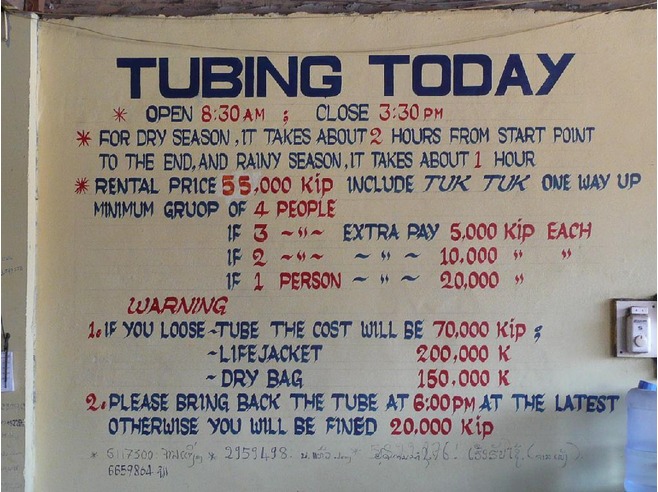 TUBING TODAY
* OPEN 8:30 AM ; CLOSE 3:30 PM
* FOR DRY SEASON, IT TAKES ABOUT 2 HOURS FROM START POINT
TO THE END, AND RAINY SEASON, IT TAKES ABOUT 1 HOUR
* RENTAL PRICE 55,000 Kip INCLUDE TUK TUK ONE WAY UP
MINIMUM GRUOP OF 4 PEOPLE
IF 3 ~"~ EXTRA PAY 5,000 Kip EACH
IF 2 ~"~ ~ " ~ 10,000 " "
IF 1 PERSON ~ " ~ 20,000 "
WARNING
1. IF YOU LOOSE ~TUBE THE COST WILL BE 70,000 Kip ;
~LIFEJACKET 200,000 K
~DRY BAG 150,000 K
2. PLEASE BRING BACK THE TUBE AT 6:00PM AT THE LATEST
OTHERWISE YOU WILL BE FINED 20,000 Kip
* 2959498.
6659864